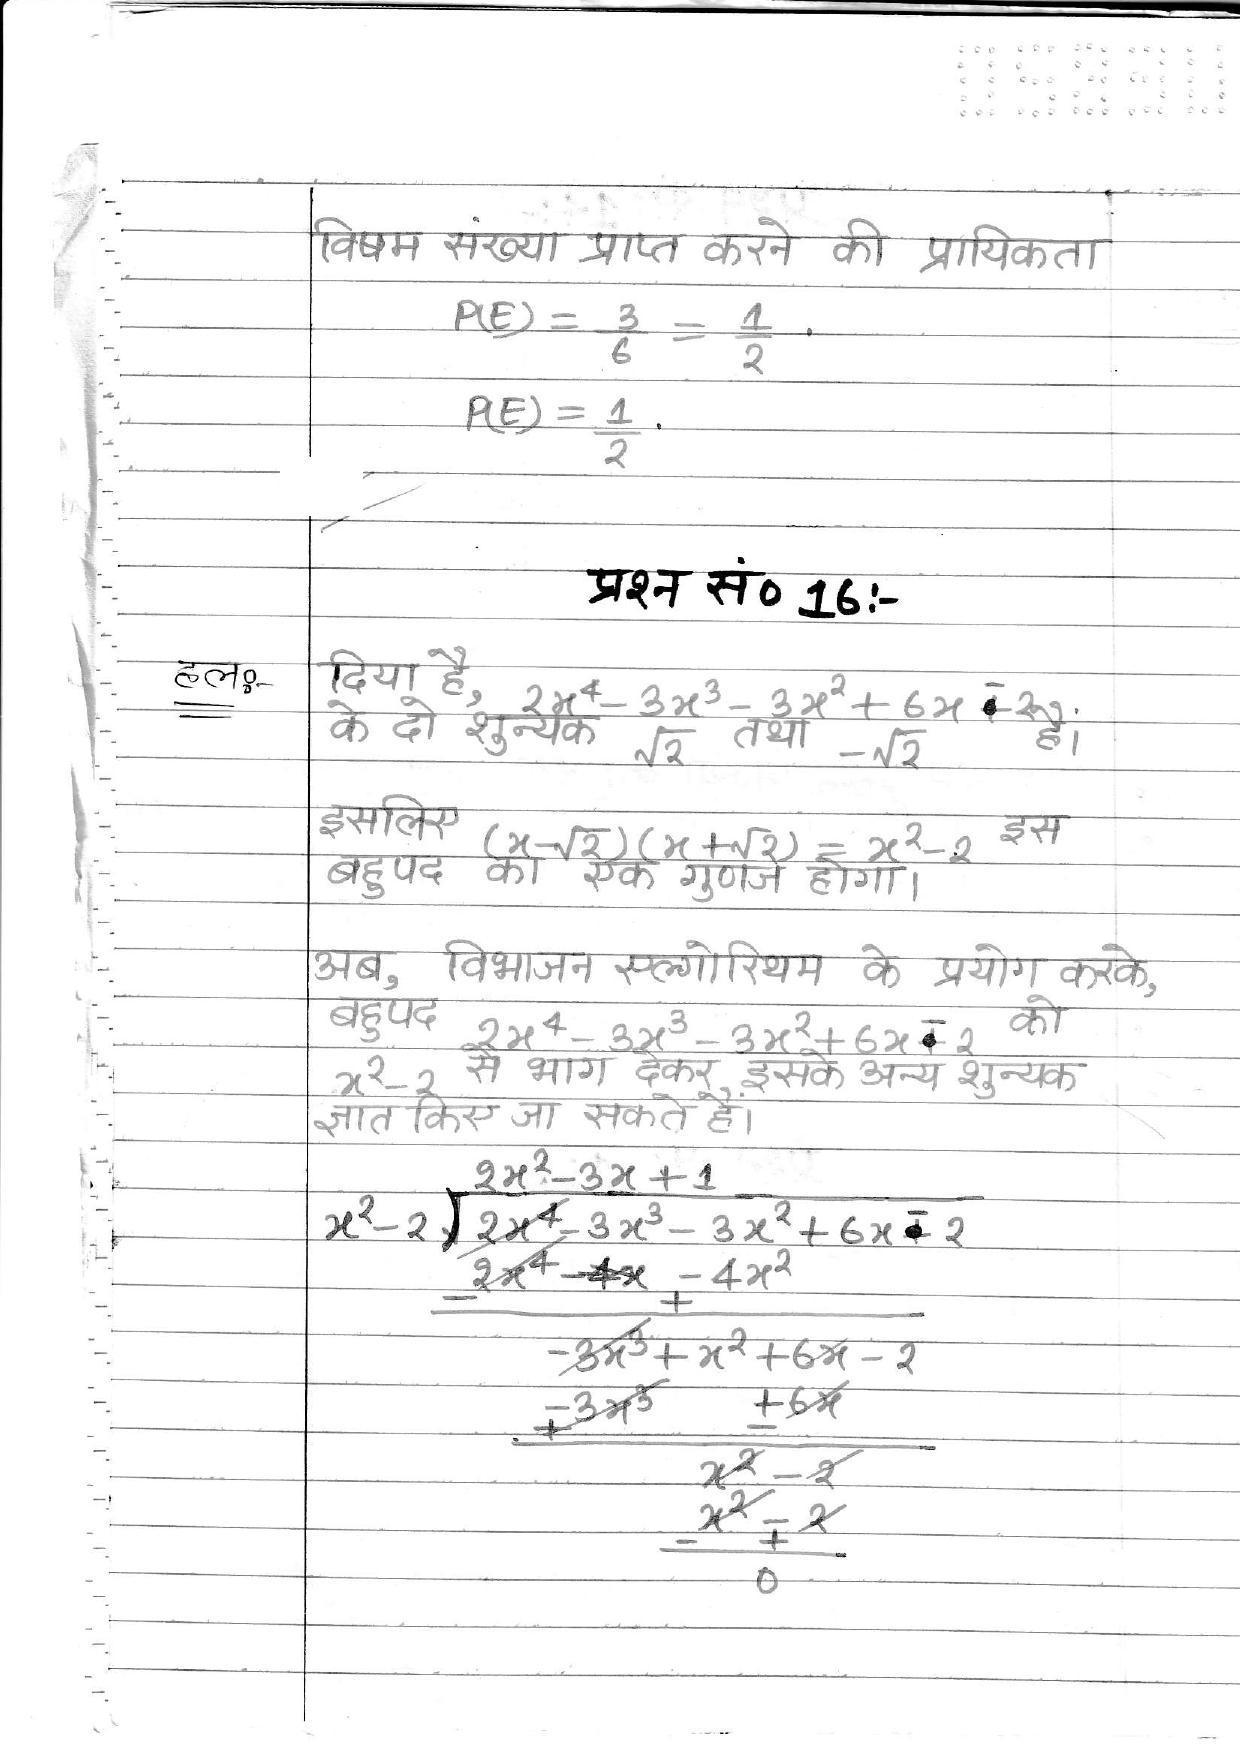 विषम संख्या प्राप्त करने की प्रायिकता
P(E) = 3/6 = 1/2 .
P(E) = 1/2 .
प्रश्न सं० 16:-
हलः- दिया है, 2x⁴ - 3x³ - 3x² + 6x - 2,
के दो शुन्यक √2 तथा -√2 है।
इसलिए (x-√2)(x+√2) = x²-2 इस
बहुपद का एक गुणज होगा।
अब, विभाजन एल्गोरिथम के प्रयोग करके,
बहुपद 2x⁴ - 3x³ - 3x² + 6x - 2 को
x²-2 से भाग देकर, इसके अन्य शुन्यक
ज्ञात किए जा सकते हैं।
2x² - 3x + 1
x² - 2 ) 2x⁴ - 3x³ - 3x² + 6x - 2
2x⁴ - 4x - 4x²
- +
-3x³ + x² + 6x - 2
-3x³ + 6x
+ -
x² - 2
x² - 2
- +
0